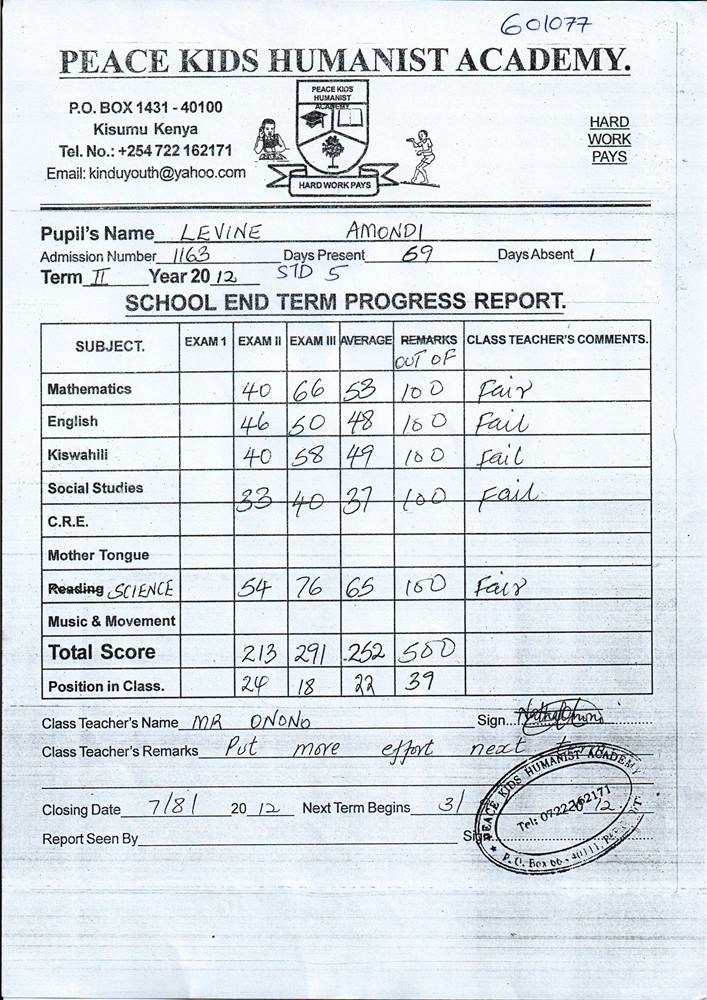 601077
PEACE KIDS HUMANIST ACADEMY.
P.O. BOX 1431 - 40100
Kisumu Kenya
Tel. No.: +254 722 162171
Email: kinduyouth@yahoo.com
PEACE KIDS
HUMANIST
ACADEMY
HARD WORK PAYS
HARD
WORK
PAYS
Pupil's Name LEVINE AMONDI
Admission Number 1163 Days Present 69 Days Absent 1
Term II Year 2012 STD 5
SCHOOL END TERM PROGRESS REPORT.
SUBJECT. EXAM 1 EXAM II EXAM III AVERAGE REMARKS OUT OF CLASS TEACHER'S COMMENTS.
Mathematics 40 66 53 100 Fair
English 46 50 48 100 Fail
Kiswahili 40 58 49 100 Fail
Social Studies 33 40 37 100 Fail
C.R.E.
Mother Tongue
Reading SCIENCE 54 76 65 100 Fair
Music & Movement
Total Score 213 291 252 500
Position in Class. 24 18 22 39
Class Teacher's Name MR ONONO Sign...
Class Teacher's Remarks Put more effort next
Closing Date 7/8/ 2012 Next Term Begins 3/ 12
Report Seen By
PEACE KIDS HUMANIST ACADEMY
Tel: 0722262171
P. O. Box 66 - 40111,